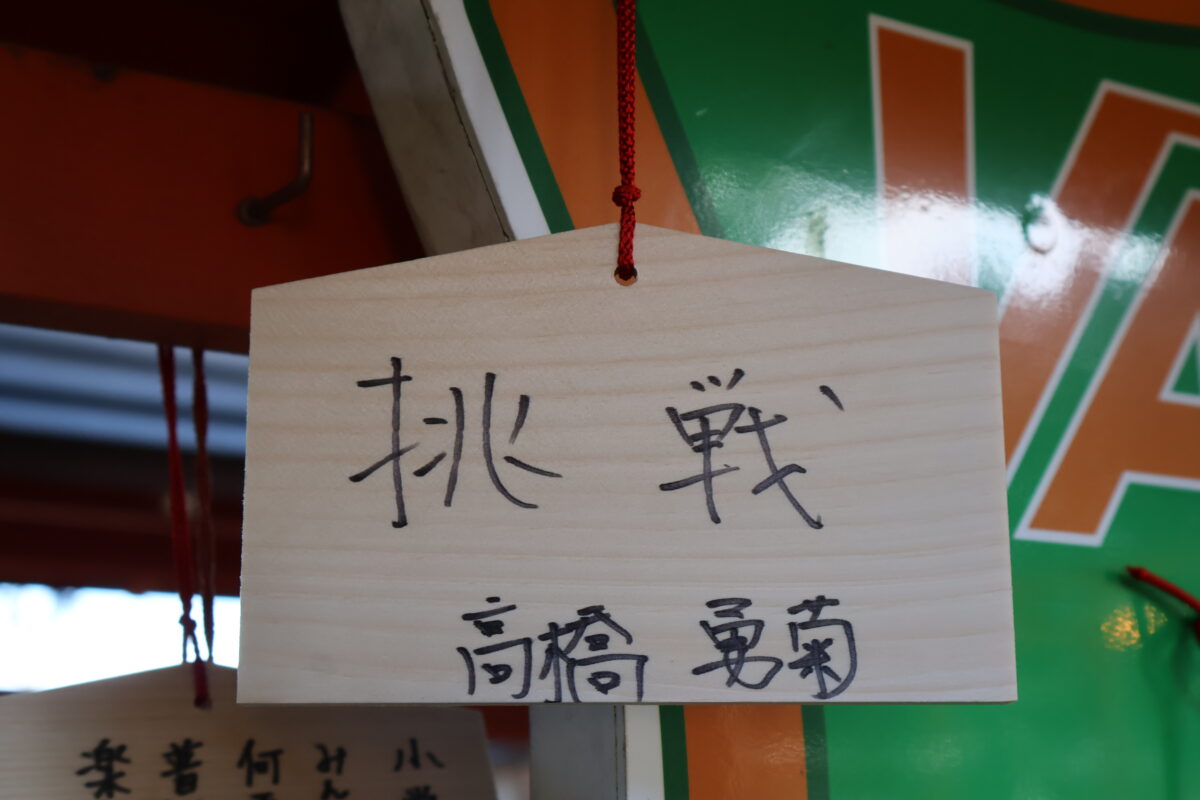 挑戦
高橋 勇菊
小
みん
何
普
楽